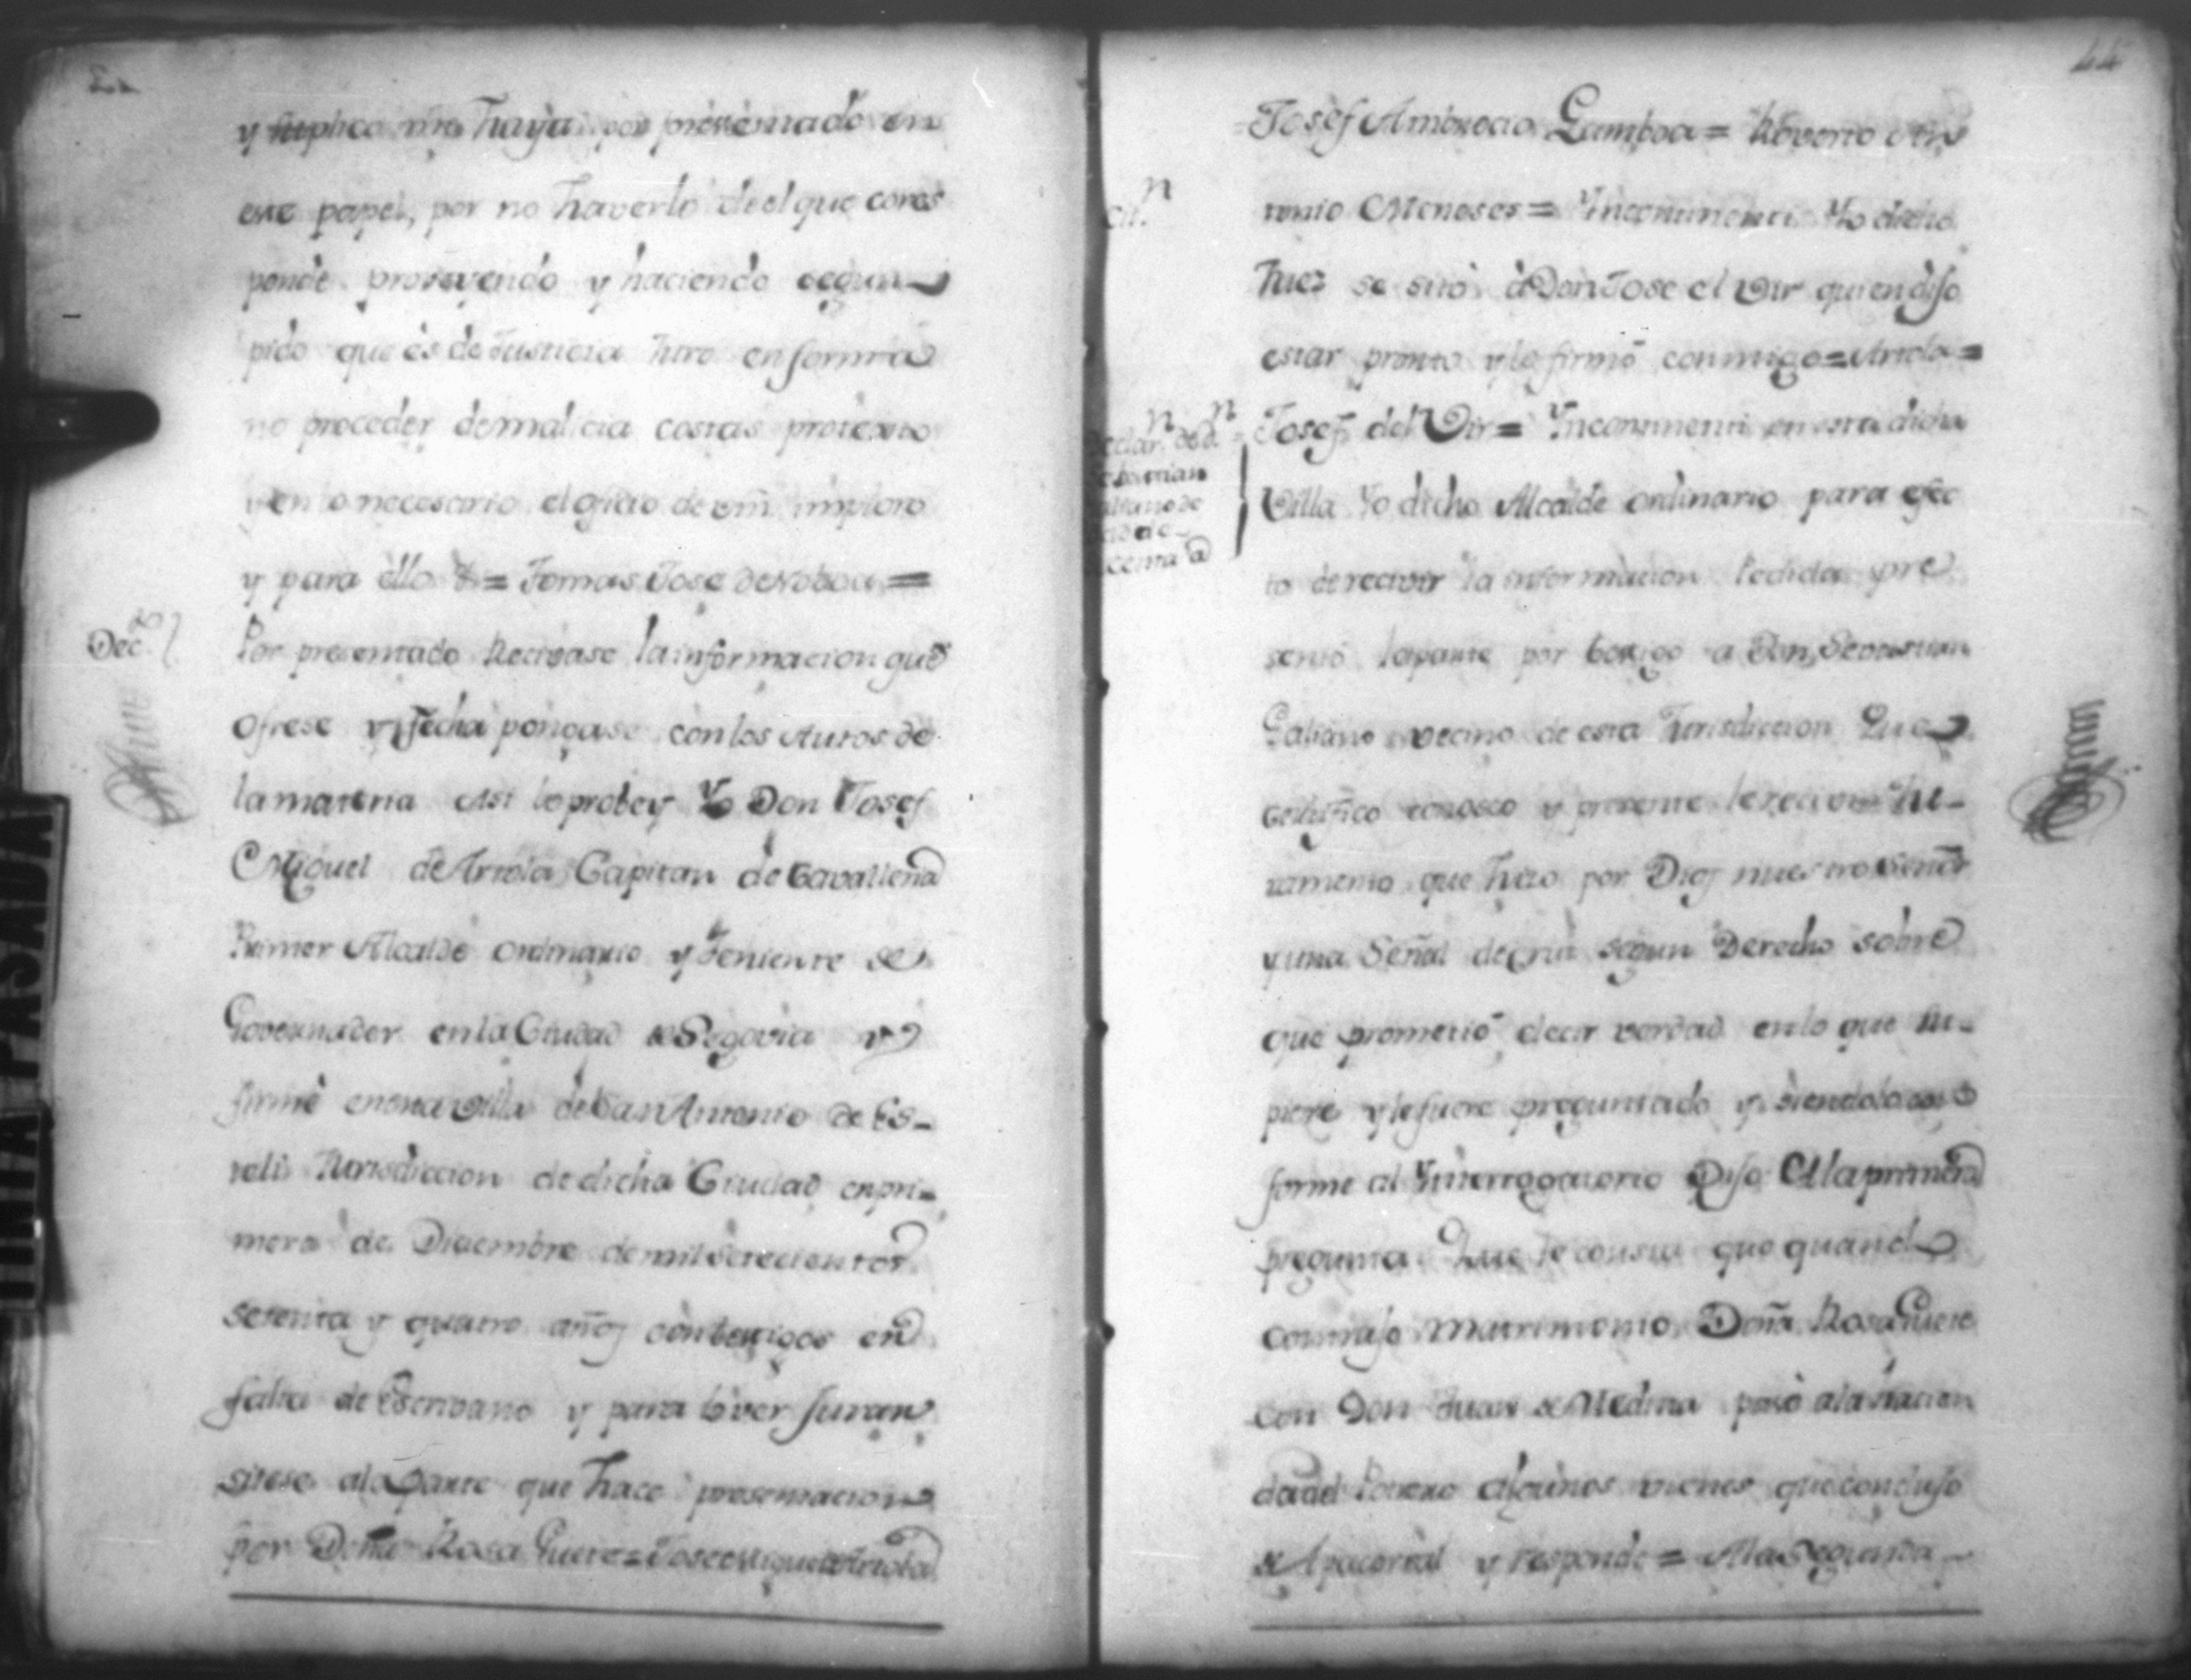 y suplico vm. haya por presentado en
este papel, por no haverlo de el que corres
ponde proveyendo y haciendo segun
pido que es de Justicia Juro en forma
no proceder de malicia costas protexto
y en lo necesario el oficio de vm. imploro
y para ello &= Tomas Jose de Noboa =
Dec.to
Por presentado Recivase la informacion que
ofrese y fecha pongase con los Autos de
la materia Asi lo probey Yo Don Josef
Miguel de Arrola Capitan de Cavalleria
Primer Alcalde ordinario y Teniente de
Governador en la Ciudad de Segovia y
firmé en esta Villa de San Antonio de Es-
teli Jurisdiccion de dicha Ciudad en pri-
mero de Diciembre de mil setecientos
setenta y quatro años con testigos en
falta de Escrivano y para lo ver Jurar
sitese ala parte que hace presentacion
por Doña Rosa Guere= Jose Miguel Arrola
Josef Ambrocio Gamboa= Roverto An
tonio Meneses= Yncontinenti Yo dicho
Juez se sitó à Don Jose el Vir quien dijo
estar pronto y lo firmó conmigo= Arrola=
Declar.n de D.n
Josef del Vir= Yncontinenti en esta dicha
Villa Yo dicho Alcalde ordinario para efec
to de recivir la informacion Pedida pre
sentó la parte por testigo a Don Sevastian
Galiano vecino de esta Jurisdiccion Que
certifico conosco y presente le recivi Ju-
ramento que hizo por Dios nuestro Señor
y una Señal de Cruz segun Derecho sobre
que prometió decir verdad en lo que su-
piere y le fuere preguntado y siendolo con
forme al Ynterrogatorio Dijo A la primera
pregunta Que le consta que quando
contrajo Matrimonio Doña Rosa Guere
con Don Juan de Medina pasó a la
del Potrero algunos vienes que condujo
de y responde= A la Segunda